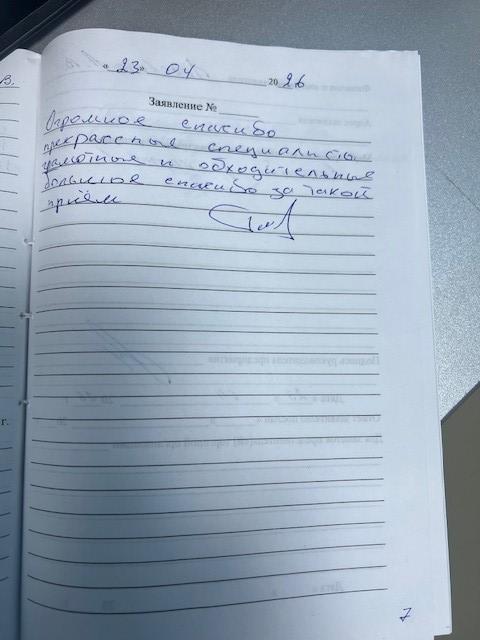 в.
« 23 » 04 20 26
Заявление №
Огромное спасибо
прекрассные специалисты
грамотные и обходительные
большое спасибо за такой
приём
г.
7